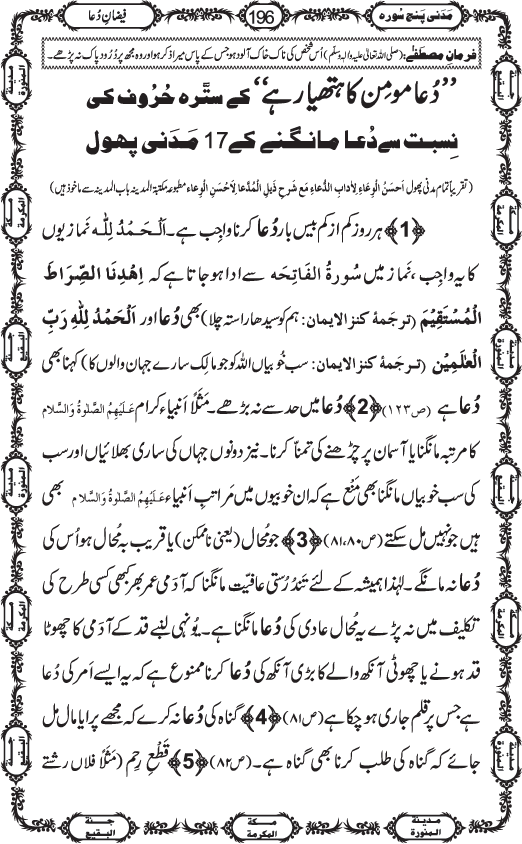 مَدَنی پنج سورہ
196
فیضانِ دُعا
فرمانِ مصطفٰے: (صلی اللہ تعالیٰ علیہ والہٖ وسلّم) اُس شخص کی ناک خاک آلود ہو جس کے پاس میرا ذِکر ہو اور وہ مجھ پر دُرُودِ پاک نہ پڑھے۔
”دُعا مومِن کا ہتھیار ہے“ کے ستَّرہ حُرُوف کی
نِسبت سے دُعا مانگنے کے 17 مَدَنی پھول
(تقریباً تمام مدنی پھول اَحسَنُ الْوِعَاءِ لِاٰدابِ الدُّعاءِ مَعَ شَرح ذَیلُ الْمُدَّعا لِاَحْسَنِ الْوِعاء مطبوعہ مکتبۃ المدینہ باب المدینہ سے ماخوذ ہیں)
﴿1﴾ ہر روز کم از کم بیس بار دُعا کرنا واجِب ہے۔ اَلْحَمْدُ لِلّٰہ نَمازیوں
کا یہ واجِب، نَماز میں سُورَۃُ الْفَاتِحَہ سے ادا ہو جاتا ہے کہ اِھْدِنَا الصِّرَاطَ
الْمُسْتَقِیْمَ (ترجَمۂ کنزالایمان: ہم کو سیدھا راستہ چلا) بھی دُعا اور اَلْحَمْدُ لِلّٰہِ رَبِّ
الْعٰلَمِیْنَ (ترجَمۂ کنزالایمان: سب خُوبیاں اللہ کو جو مالِک سارے جہان والوں کا) کہنا بھی
دُعا ہے (ص۱۲۳) ﴿2﴾ دُعا میں حد سے نہ بڑھے۔ مَثَلًا اَنبِیاءِ کرام عَلَیْہِمُ الصَّلٰوۃُ وَالسَّلام
کا مرتبہ مانگنا یا آسمان پر چڑھنے کی تمنّا کرنا۔ نیز دونوں جہاں کی ساری بھلائیاں اور سب
کی سب خوبیاں مانگنا بھی مَنْع ہے کہ ان خوبیوں میں مَراتِبِ اَنبِیاء عَلَیْہِمُ الصَّلٰوۃُ وَالسَّلام بھی
ہیں جو نہیں مل سکتے (ص۸۰،۸۱) ﴿3﴾ جو مُحال (یعنی ناممکن) یا قریب بہ مُحال ہو اُس کی
دُعا نہ مانگے۔ لہٰذا ہمیشہ کے لئے تَندُرُستی عافیّت مانگنا کہ آدَمی عمر بھر کبھی کسی طرح کی
تکلیف میں نہ پڑے یہ مُحالِ عادی کی دُعا مانگنا ہے۔ یُونہی لمبے قد کے آدَمی کا چھوٹا
قد ہونے یا چھوٹی آنکھ والے کا بڑی آنکھ کی دُعا کرنا ممنوع ہے کہ یہ ایسے اَمر کی دُعا
ہے جس پر قلم جاری ہو چکا ہے (ص۸۱) ﴿4﴾ گناہ کی دُعا نہ کرے کہ مجھے پَرایا مال مل
جائے کہ گناہ کی طلب کرنا بھی گناہ ہے۔ (ص۸۲) ﴿5﴾ قَطْعِ رحم (مَثَلًا فلاں رشتے
جنۃ البقیع
مکۃ المکرمۃ
مدینۃ المنورۃ